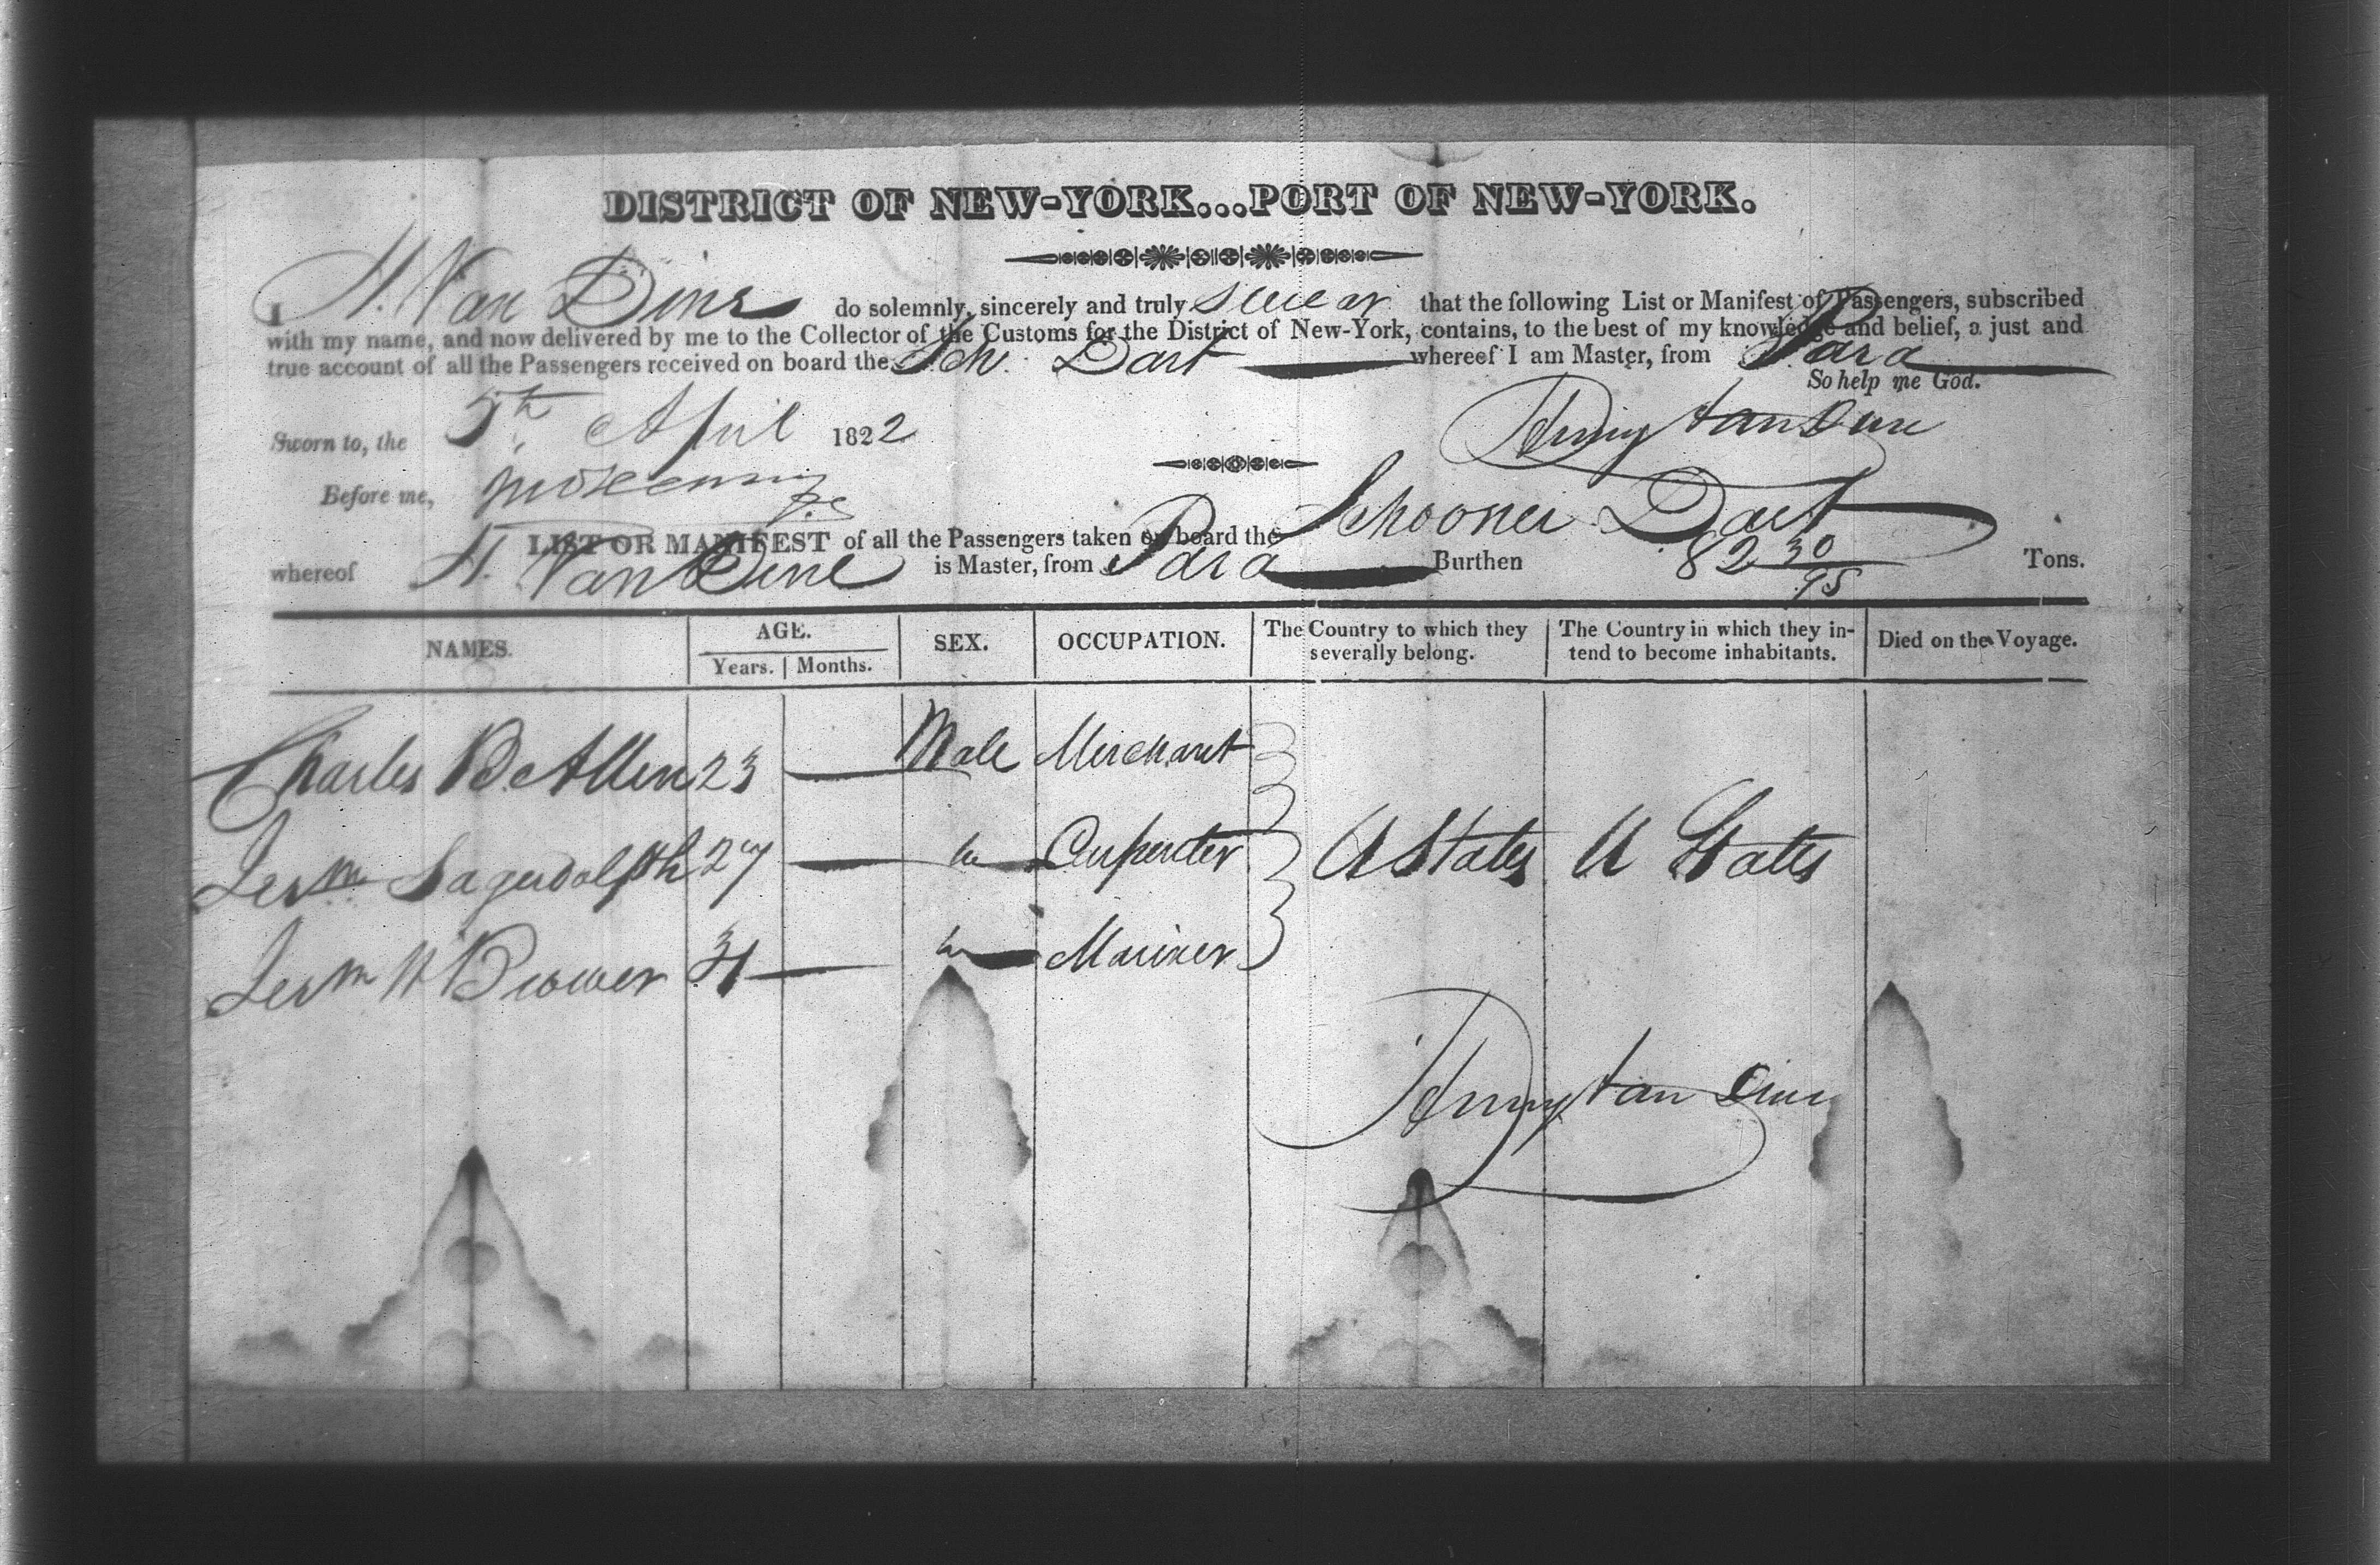 DISTRICT OF NEW-YORK...PORT OF NEW-YORK.
I H. Van Dine do solemnly, sincerely and truly swear that the following List or Manifest of Passengers, subscribed
with my name, and now delivered by me to the Collector of the Customs for the District of New-York, contains, to the best of my knowledge and belief, a just and
true account of all the Passengers received on board the Sch. Dart whereof I am Master, from Para
So help me God.
Sworn to, the 5th April 1822
Henry Van Dine
Before me,
LIST OR MANIFEST of all the Passengers taken on board the Schooner Dart
whereof H. Van Dine is Master, from Para Burthen 82 30/95 Tons.
NAMES. AGE. SEX. OCCUPATION. The Country to which they severally belong. The Country in which they intend to become inhabitants. Died on the Voyage.
Years. Months.
Charles B. Allen 23 Male Merchant
Jerm 27 Carpenter U States U States
Jerm H Brower 31 Mariner
Henry Van Dine